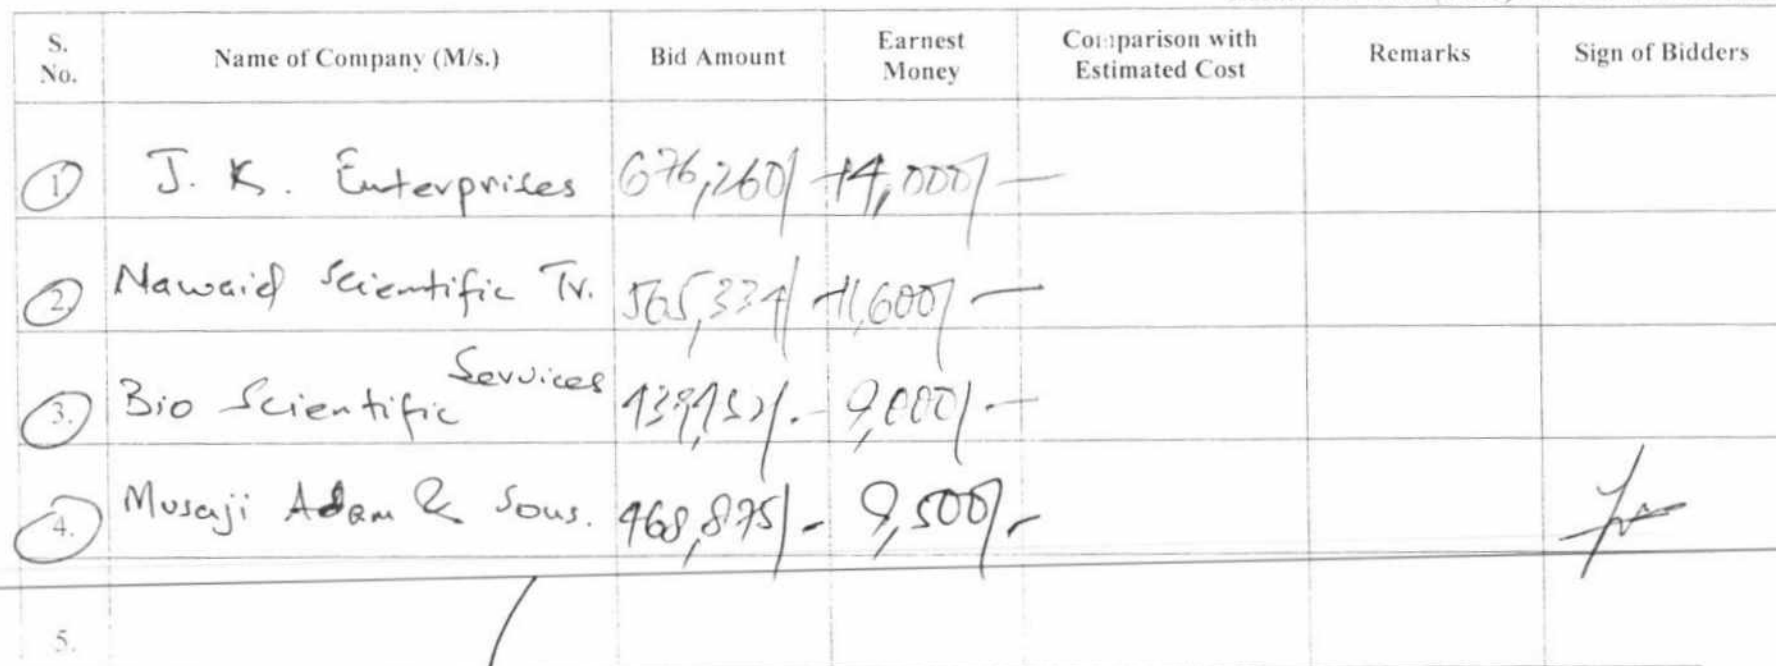 S. No. Name of Company (M/s.) Bid Amount Earnest Money Comparison with Estimated Cost Remarks Sign of Bidders
1. J. K. Enterprises 676,260/- 14,000/-
2. Nawaid Scientific Tr. 565,334/- 11,600/-
3. Bio Scientific Services 9,000/-
4. Musaji Adam & Sons. 468,875/- 9,500/-
5.